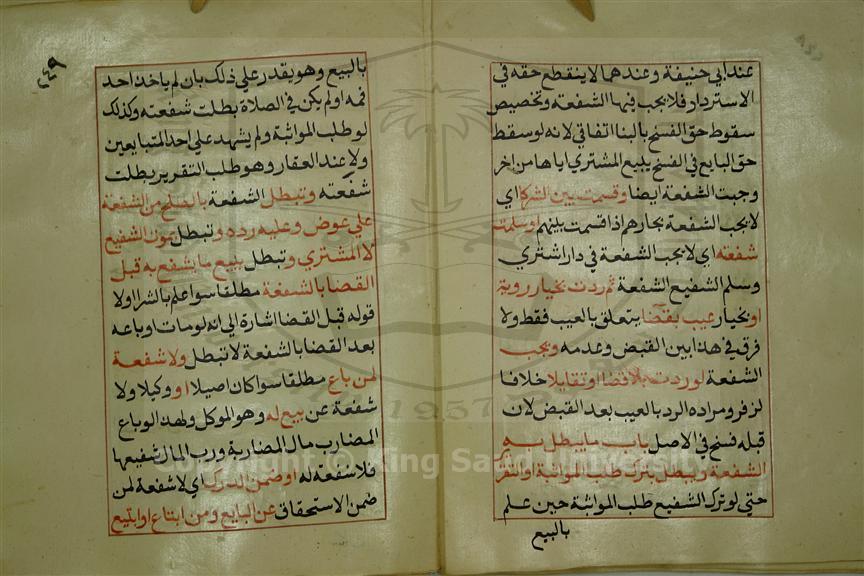 عند ابي حنيفة وعندهما لا ينقطع حقه في
الاسترداد فلا يجب فيها الشفعة وتخصيص
سقوط حق الفسخ بالبنا اتفاقي لانه لو سقط
حق البايع في الفسخ ببيع المشتري اياها من اخر
وجبت الشفعة ايضا وقسمت بين الشركا اي
لا يجب الشفعة بجارهم اذا قسمت بينهم او سلمت
شفعته اي لا يجب الشفعة في دار اشتري
وسلم الشفيع الشفعة ثم ردت بخيار روية
او بخيار عيب بقضا يتعلق بالعيب فقط ولا
فرق في هذا بين القبض وعدمه ويجب
الشفعة لو ردت بلا قضا او تقايلا خلافا
لزفر ومراده الرد بالعيب بعد القبض لان
قبله فسخ في الاصل باب ما يبطل به
الشفعة ويبطل بترك طلب المواثبة او التقرير
حتي لو ترك الشفيع طلب المواثبة حين علم
بالبيع
٢٤٩
بالبيع وهو يقدر علي ذلك بان لم ياخذ احد
فمه او لم يكن في الصلاة بطلت شفعته وكذلك
لو طلب المواثبة ولم يشهد علي احد المتبايعين
ولا عند العقار وهو طلب التقرير بطلت
شفعته وتبطل الشفعة بالصلح من الشفعة
علي عوض وعليه رده وتبطل بموت الشفيع
لا المشتري وتبطل ببيع ما يشفع به قبل
القضا بالشفعة مطلقا سوا علم بالشرا او لا
قوله قبل القضا اشارة الي انه لو مات او باعه
بعد القضا بالشفعة لا تبطل ولا شفعة
لمن باع مطلقا سوا كان اصيلا او وكيلا ولا
شفعة عن بيع له وهو الموكل ولهذا لو باع
المضارب مال المضاربة ورب المال شفيعها
فلا شفعة له او ضمن الدرك اي لا شفعة لمن
ضمن الاستحقاق عن البايع ومن ابتاع او ابتيع
Copyright © King Saud University
1957